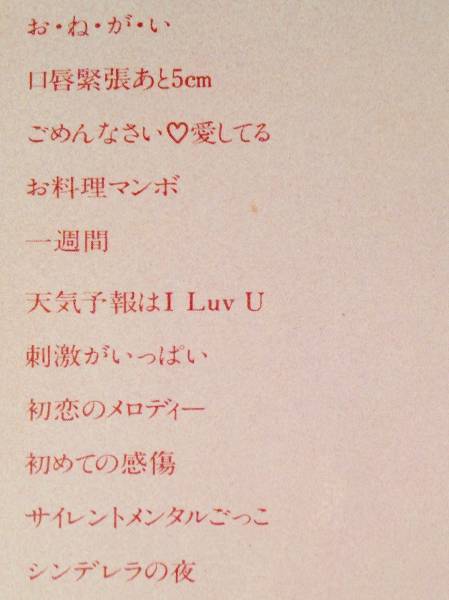 お・ね・が・い
口唇緊張あと5cm
ごめんなさい♡愛してる
お料理マンボ
一週間
天気予報はI Luv U
刺激がいっぱい
初恋のメロディー
初めての感傷
サイレントメンタルごっこ
シンデレラの夜